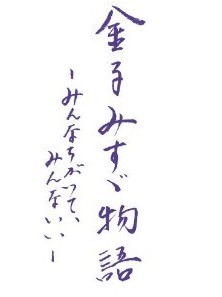 金子みすゞ物語
-みんなちがって、
みんないい-